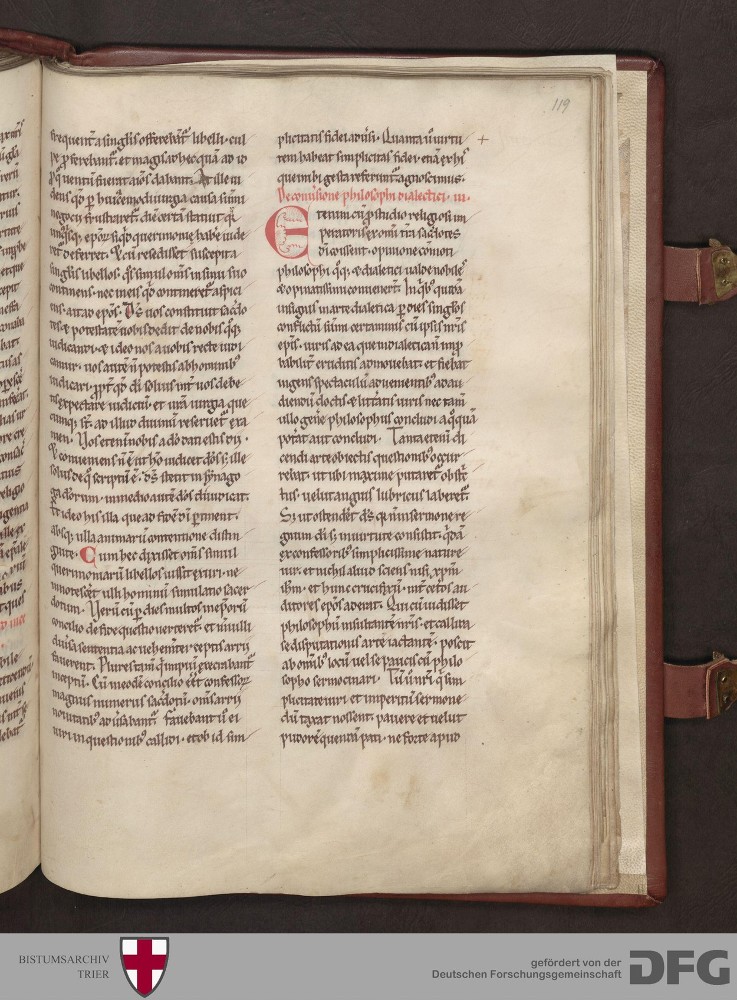 119
frequent a singlis offerebant libelli · cul
pe p̄ ferebant̄ · et magis ad hec quā ad id
ꝓ quenti fuerat aīos dabant · At ille ui
dens qđ p̄ huiꝰcemodi iurgia causa sūmi
negocii frustraret̄ · diē certā statuit q̄ i
unꝰqisq; epōꝝ si qđ querimonie habe uide
ret̄ deferret · Et cū resedisset suscepit a
singlis libellos · q̄s simul om̄s in sinu suo
continens · nec in eis qđ contineret̄ aspici
ens · ait ad ep̄os · D̄s uos constituit sacdo
tes · et potestatē uobis dedit de nobis q̄q;
iudicandi · et ideo nos a uobis recte iudi
camur · uos aute n̄ potestis ab hominibꝰ
iudicari · ꝓpt̄ qđ di soliꝰ int̄ uos debe
tis expectare iudiciū · et urā iurgia que
cumq; st̄ · ad illud diuinū reseruet̄ exa
men · Vos etenī nobis a dō dati estis dii ·
Et conueniens n̄ ē ut hō iudicet dōs · sꝫ ille
solus de q̄ scriptū ē · D̄s stetit in synago
ga deorum · in medio autē dōs diiudicat ·
Et ideo his illa que ad fidē di ꝑtinent ·
absq; ulla animarū contentione distin
guite · Cum hec dixisset om̄s simul
querimoniarū libellos iussit exuri · ne
innotescet̄ ulli hominū simultatio sacer
dotum · Verū cū p̄ dies multos in ep̄orū
concilio de fide questio uerteret̄ · et ñnulli
diūsa sententia ac uehemt̄er ceptis arrii
fauerent · Plures tam̄ q̄ impiū execrabant̄
inceptū · Cū in eodē concilio eēt confessoꝝ
magnus numerus sacdotū · om̄s arrii
nouitatibꝰ aduersabant̄ · Fauebant ū ei
uiri in questionibꝰ callidi · et ob id sim
plicitatis fidei aduersi · Quanta ū uirtu
tem habeat simplicitas fidei · etiā ex his
que inibi gesta referunt̄ agnoscimus ·
De conuersione philosophi dialectici · iii ·
Etenim cū p̄ studio religiosi im
peratoris ex omi tra sacdotes
di coissent · opinione cōmoti
philosophi q̄q; et dialectici ualde nobiles
et opinatissimi conuenerunt · In q̄bꝰ quidā
insignis in arte dialetica · p̄ dies singlos
conflictū sūmi certaminis cū ipsis nr̄is
ep̄is · uiris adeque in dialeticam imp̄
babilit̄ eruditis admouebat · et fiebat
ingens spectaculū aduenientibꝰ ad au
diendū doctis et litt̄atis uiris · nec tam̄
ullo gnē philosophus concludi a q̄quā
pot̄at aut concludi · Tanta etenī di
cendi arte obiectis questionibꝰ occur
rebat · ut ubi maxime putaret̄ obstr̄
tus · uelut anguis lubricus laberet̄ ·
Sꝫ ut ostenderet d̄s q̄a n̄ in sermone re
gnum di sꝫ in uirtute consistit · q̄dā
ex confessoribꝰ simplicissime nature
uir · et nichil aliud sciens nisi xp̄m
ihm̄ · et hunc crucifixū · int̄ cetos au
ditores ep̄os aderat · Qui cū uidisset
philosophū insultantē nr̄is · et callida
se disputationis arte iactantē · poscit
ab omibꝰ locū · uel se paucis cū philo
sopho sermocinari · Tū ū nr̄i q̄ sim
plicitatē uiri · et imperitiā sermone
dū taxat nossent · pauere et uelut
pudorē quentā pati · ne forte apud
BISTUMSARCHIV
TRIER
gefördert von der
Deutschen Forschungsgemeinschaft
DFG